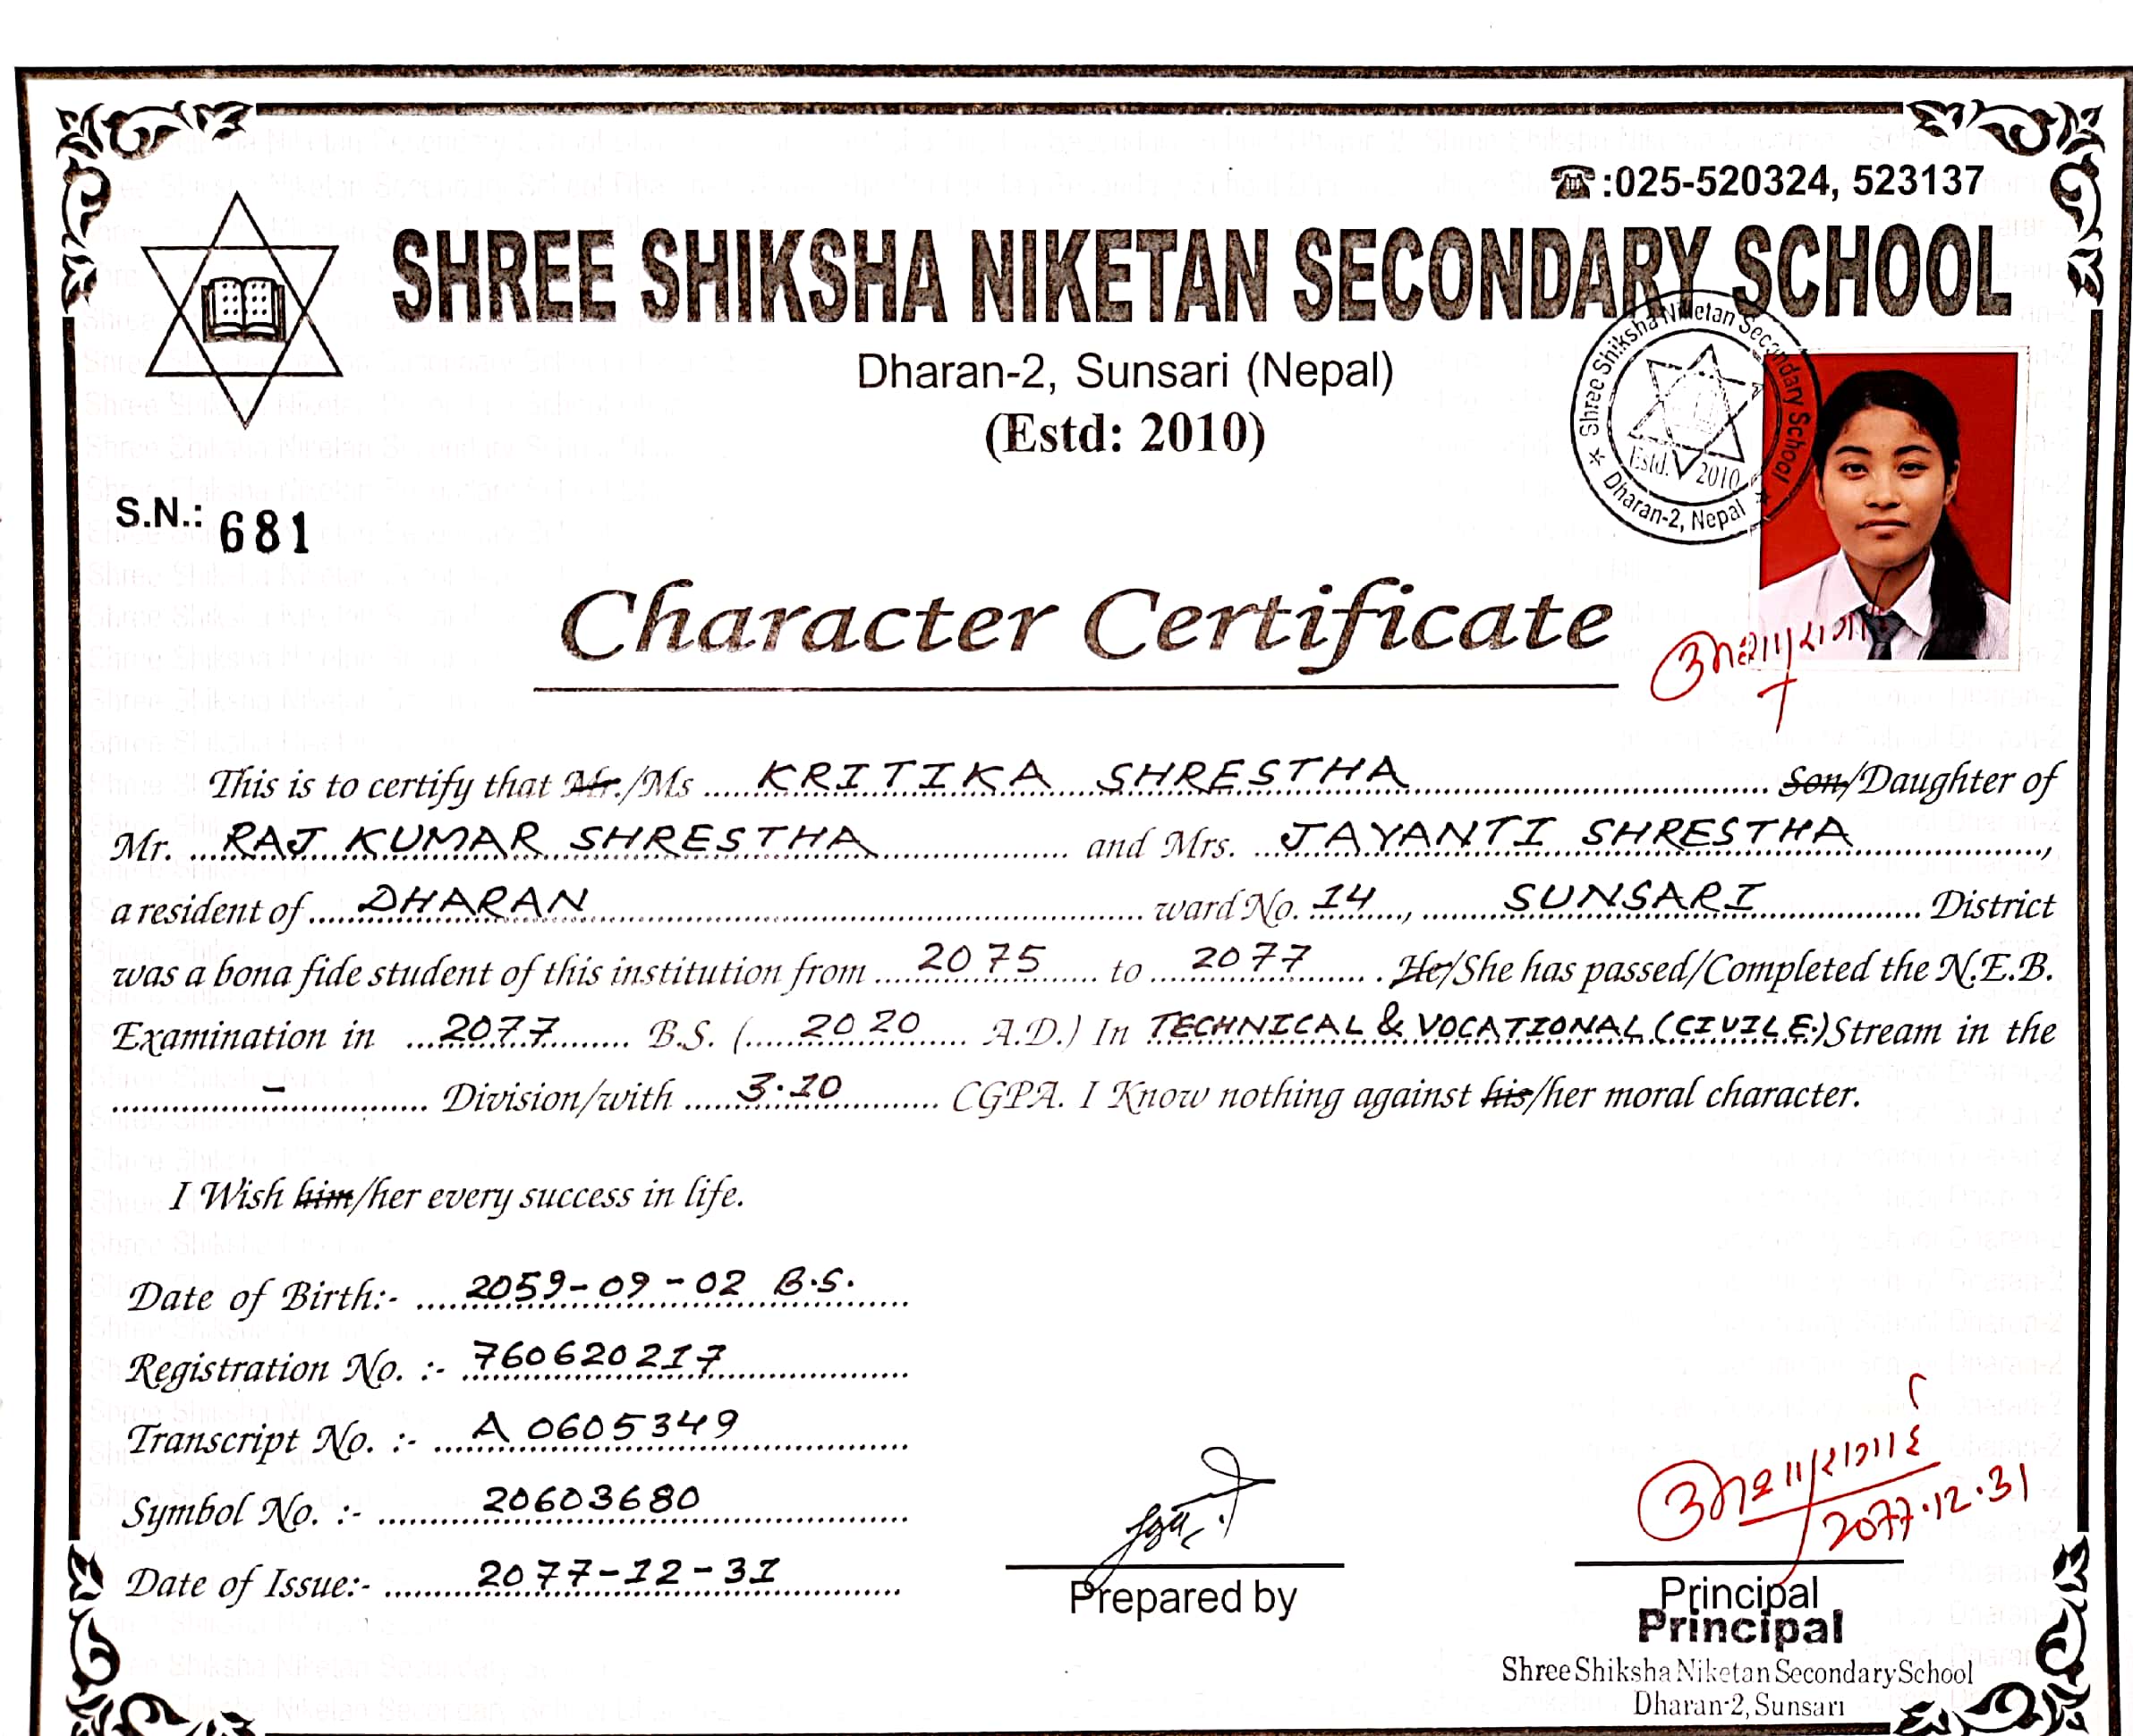 ☎:025-520324, 523137
SHREE SHIKSHA NIKETAN SECONDARY SCHOOL
Dharan-2, Sunsari (Nepal)
(Estd: 2010)
Shree Shiksha Niketan Secondary School
Estd. 2010
Dharan-2, Nepal
S.N.: 681
Character Certificate
This is to certify that Mr./Ms KRITIKA SHRESTHA Son/Daughter of
Mr. RAJ KUMAR SHRESTHA and Mrs. JAYANTI SHRESTHA,
a resident of DHARAN ward No. 14, SUNSARI District
was a bona fide student of this institution from 2075 to 2077. He/She has passed/Completed the N.E.B.
Examination in 2077 B.S. (2020 A.D.) In TECHNICAL & VOCATIONAL (CIVIL E.) Stream in the
- Division/with 3.10 CGPA. I Know nothing against his/her moral character.
I Wish him/her every success in life.
Date of Birth:- 2059-09-02 B.S.
Registration No. :- 760620217
Transcript No. :- A 0605349
Symbol No. :- 20603680
Date of Issue:- 2077-12-31
2077.12.31
Prepared by
Principal
Principal
Shree Shiksha Niketan Secondary School
Dharan-2, Sunsari